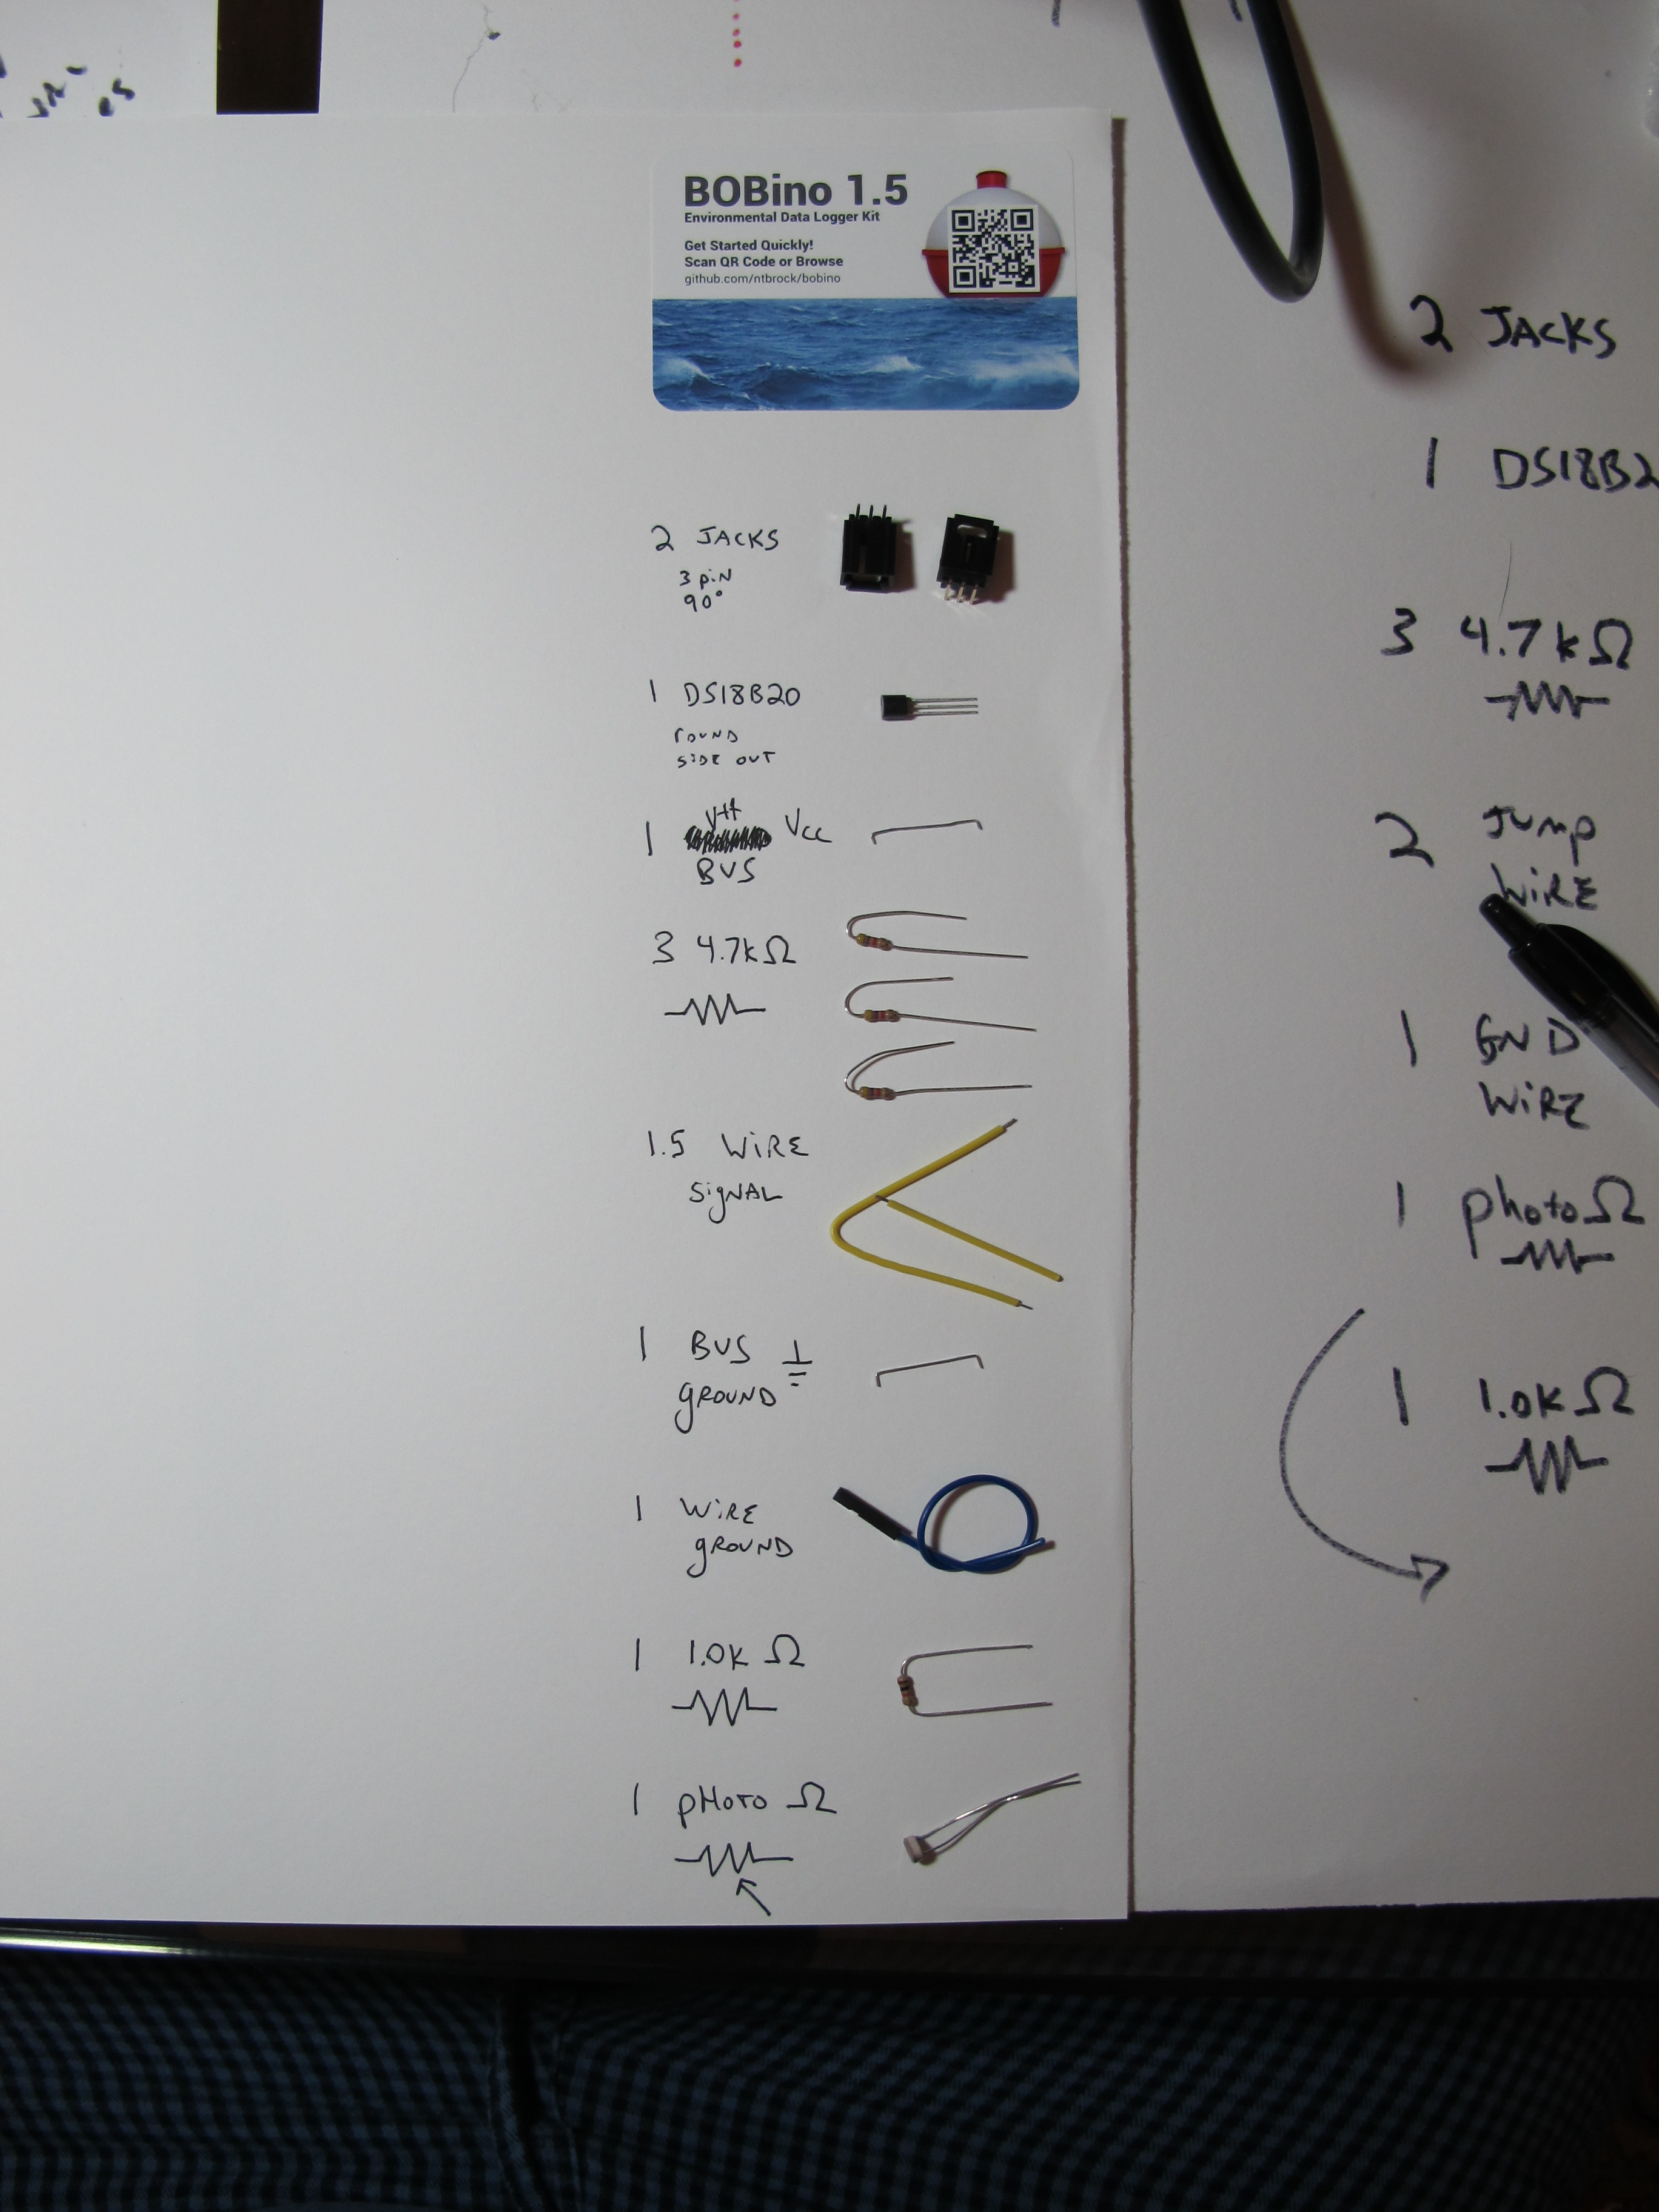 BOBino 1.5
Environmental Data Logger Kit
Get Started Quickly!
Scan QR Code or Browse
github.com/ntbrock/bobino
2 JACKS
3 PiN
90°
1 DS18B20
ROUND
SiDE OUT
1 Vcc
BUS
3 4.7kΩ
1.5 WiRE
SigNAL
1 BUS
gROUND
1 WiRE
gROUND
1 1.0K Ω
1 pHoto Ω
2 JACKS
1 DS18B2
3 4.7kΩ
2 Jump
WiRE
1 GND
WiRE
1 photoΩ
1 1.0KΩ